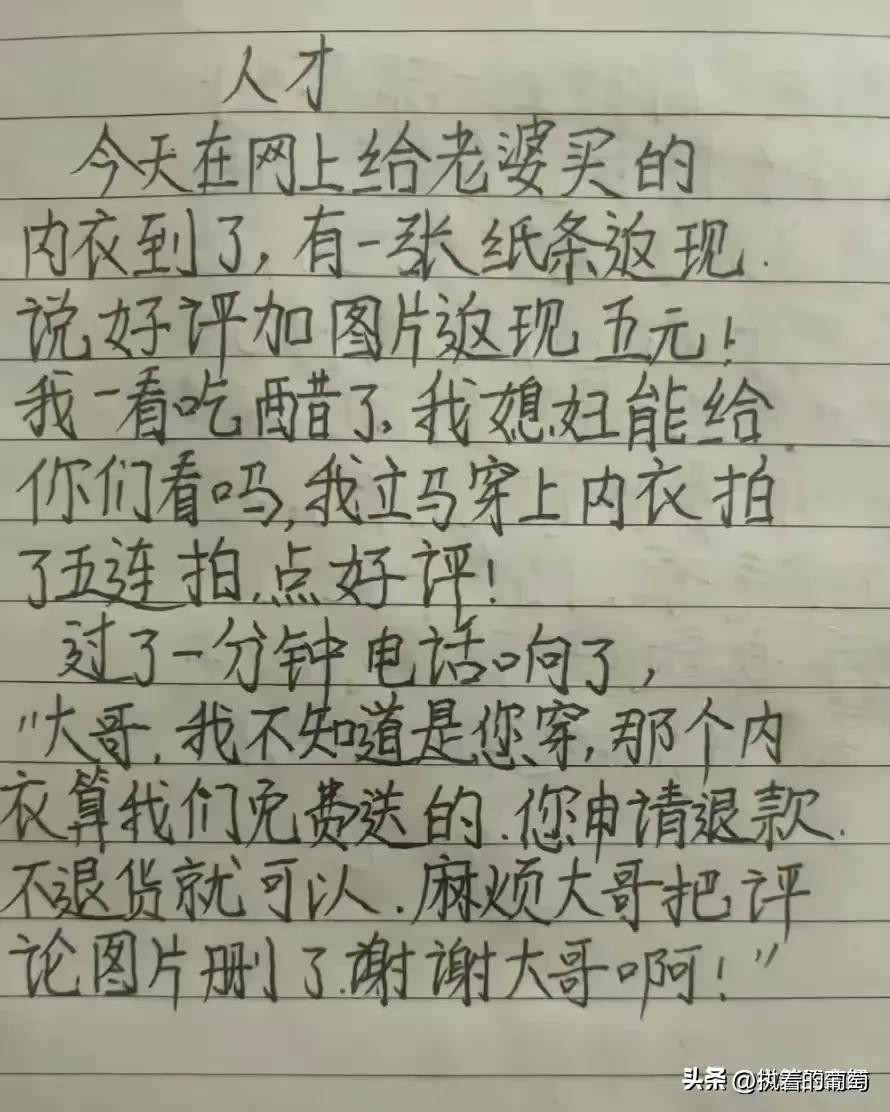 人才
今天在网上给老婆买的
内衣到了,有一张纸条返现.
说好评加图片返现五元!
我一看吃醋了.我媳妇能给
你们看吗,我立马穿上内衣拍
了五连拍.点好评!
过了一分钟电话响了,
"大哥.我不知道是您穿,那个内
衣算我们免费送的.您申请退款.
不退货就可以.麻烦大哥把评
论图片删了.谢谢大哥啊!"
头条 @执着的葡萄